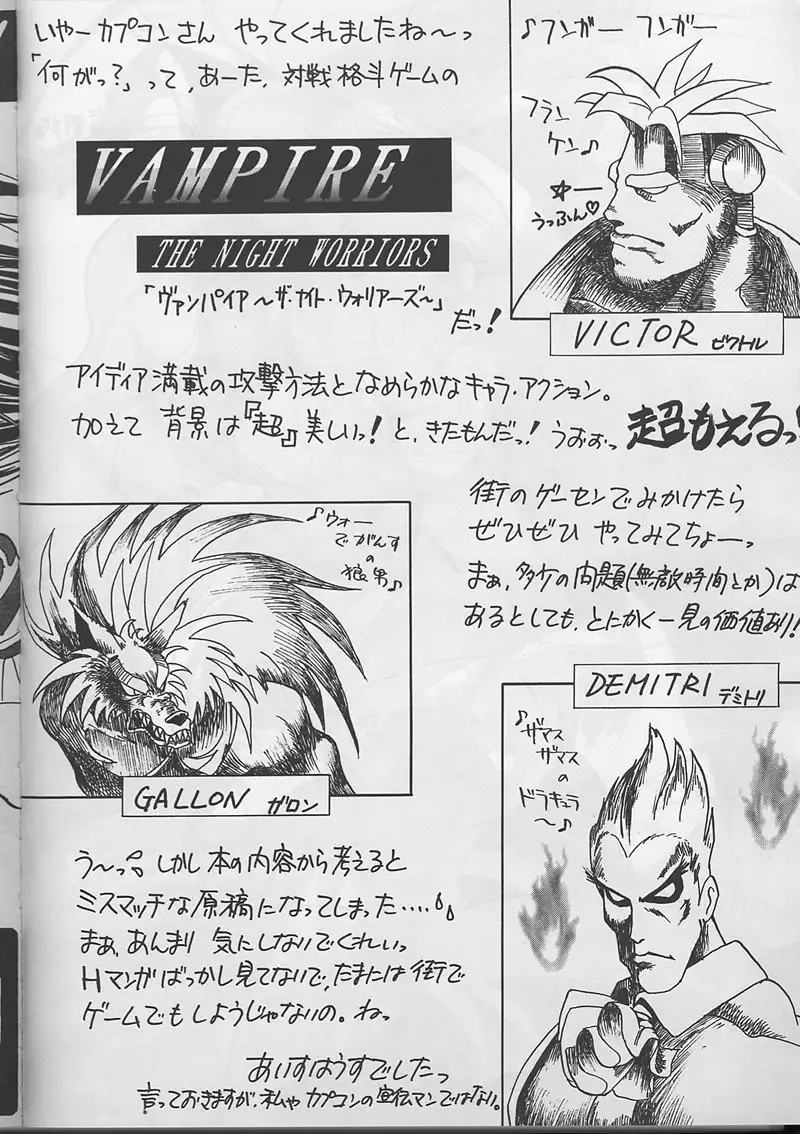 いやーカプコンさん やってくれましたね～っ
「何がっ?」って、あーた、対戦格斗ゲームの
VAMPIRE
THE NIGHT WORRIORS
「ヴァンパイア～ザ・ナイト・ウォリアーズ～」
だっ!
♪フンガー フンガー
フラン
ケン♪
☆ー
うっふん♡
VICTOR ビクトル
アイディア満載の攻撃方法となめらかなキャラ・アクション。
加えて 背景は『超』美しいっ! と、きたもんだっ! うおぉっ 超もえるっ!!
街のゲーセンでみかけたら
ぜひぜひ やってみてちょーっ
まぁ、多少の問題(無敵時間とか)は
あるとしても、とにかく一見の価値あり!
♪ウォー
でがんす
の
狼男♪
GALLON ガロン
DEMITRI デミトリ
♪ザマス
ザマス
の
ドラキュラ
～♪
う～っ。しかし本の内容から考えると
ミスマッチな原稿になってしまった‥‥
まぁ、あんまり 気にしないでくれいっ
Hマンガばっかし見てないで、たまには街で
ゲームでもしようじゃないの。ねっ
あいすはうすでしたっ
言っておきますが、私ゃカプコンの宣伝マンではない。